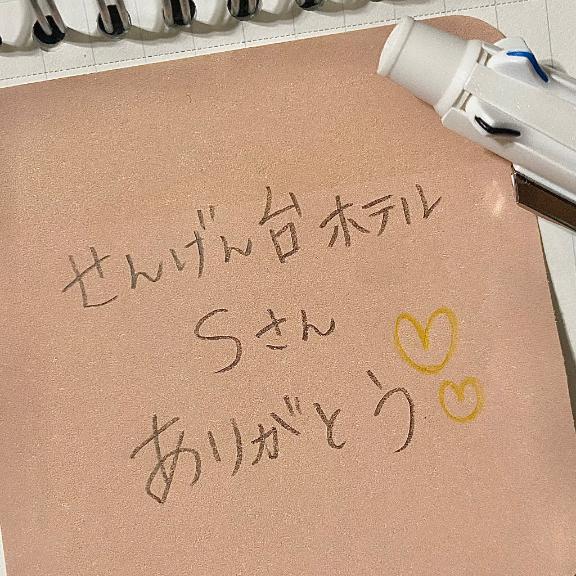 せんげん台ホテル
Sさん
ありがとう